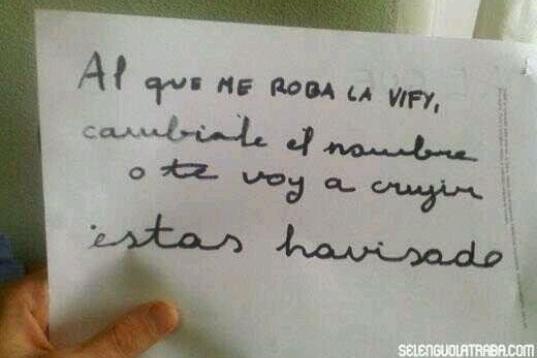 Al QUE ME ROBA LA VIFY,
cambiate el nombre
o te voy a crugir
estas havisado
SELENGUOLATRABA.COM